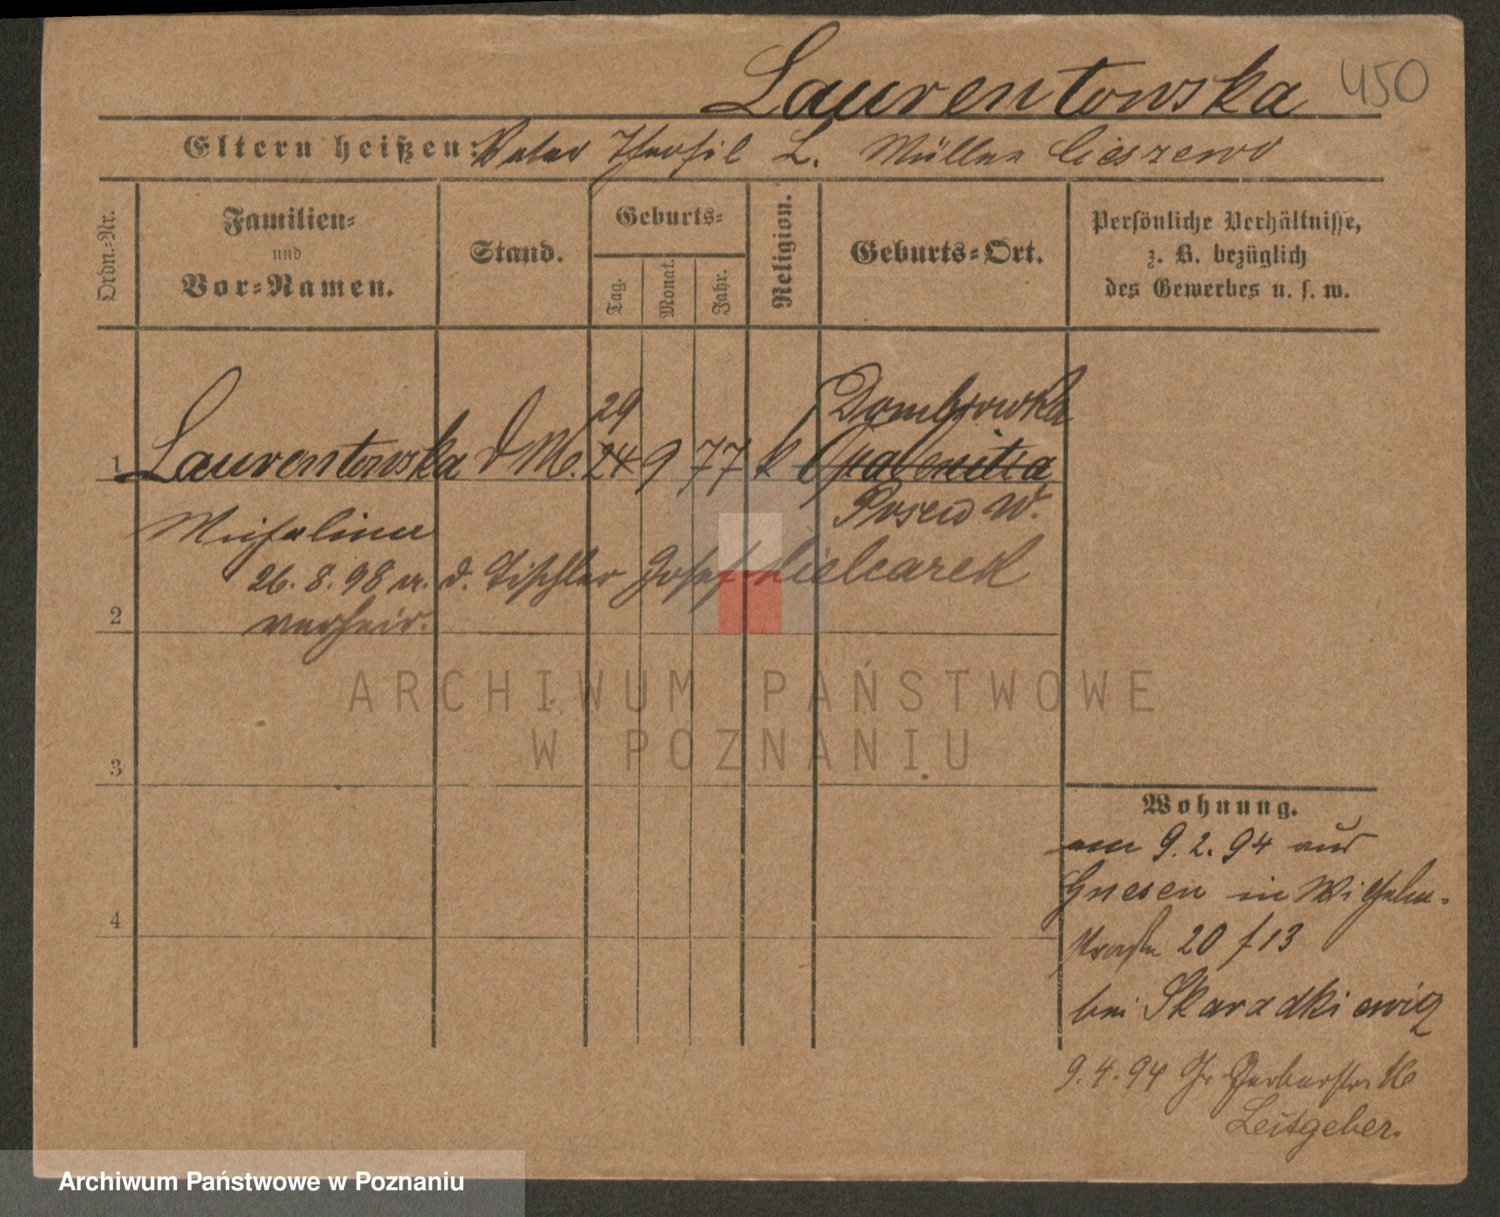 Laurentowska 450
Eltern heißen: Vater Theofil L. Müller Cieszewo
Ordn.-Nr.
Familien-
und
Vor-Namen.
Stand.
Geburts-
Tag.
Monat.
Jahr.
Religion.
Geburts-Ort.
Persönliche Verhältnisse,
z. B. bezüglich
des Gewerbes u. s. w.
29 Dombrowka
1 Laurentowska d M. 24 9 77 k Opalenitza
Michalina Posen W.
26. 8. 98 m. d. Tischler Josef Cielcarek
2 verheir.
ARCHIWUM PAŃSTWOWE
W POZNANIU
3
4
Wohnung.
am 9. 2. 94 aus
Gnesen in Wilhelm-
straße 20 f 13
bei Skaradkiewicz
9. 4. 94 Gr. Gerberstr. 16
Leitgeber.
Archiwum Państwowe w Poznaniu